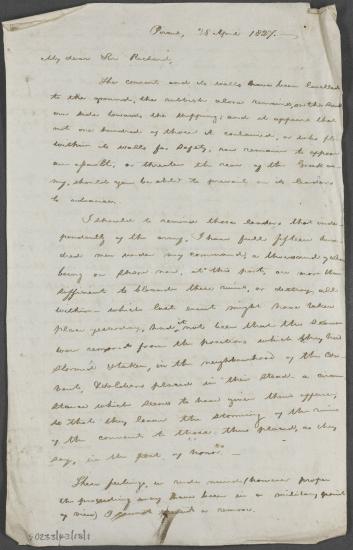 Poros, 28 April 1827.
My dear Sir Richard,
The convent and its walls have been levelled
to the ground; the rubbish alone remains, on the
our side towards the shipping; and it appears that
not one hundred of those it contained, or who fled
within its walls for safety, now remain to oppose
an assault; or threaten the rear of the Greek ar-
my, should you be able to prevail on its leaders
to advance.
I should to remind those leaders that inde-
pendently of the army, I have full fifteen hun-
dred men under my command; a thousand of whom
being on shore now, at this port, are more than
sufficient to blockade these ruins, or destroy all
within which last event might have taken
place yesterday, had it not been that the
were removed from the positions which they had
stormed & taken, in the neighbourhood of the con-
vent, & soldiers placed in their stead a circum-
stance which seems to have given them offence;
so that they leave the storming of the ruins
of the convent to those thus placed, as they
say, in the post of "honor". —
These feelings, in rude minds (however proper
the proceeding may have been in a military point
of view) I found a remove.
S0233/43/18/1